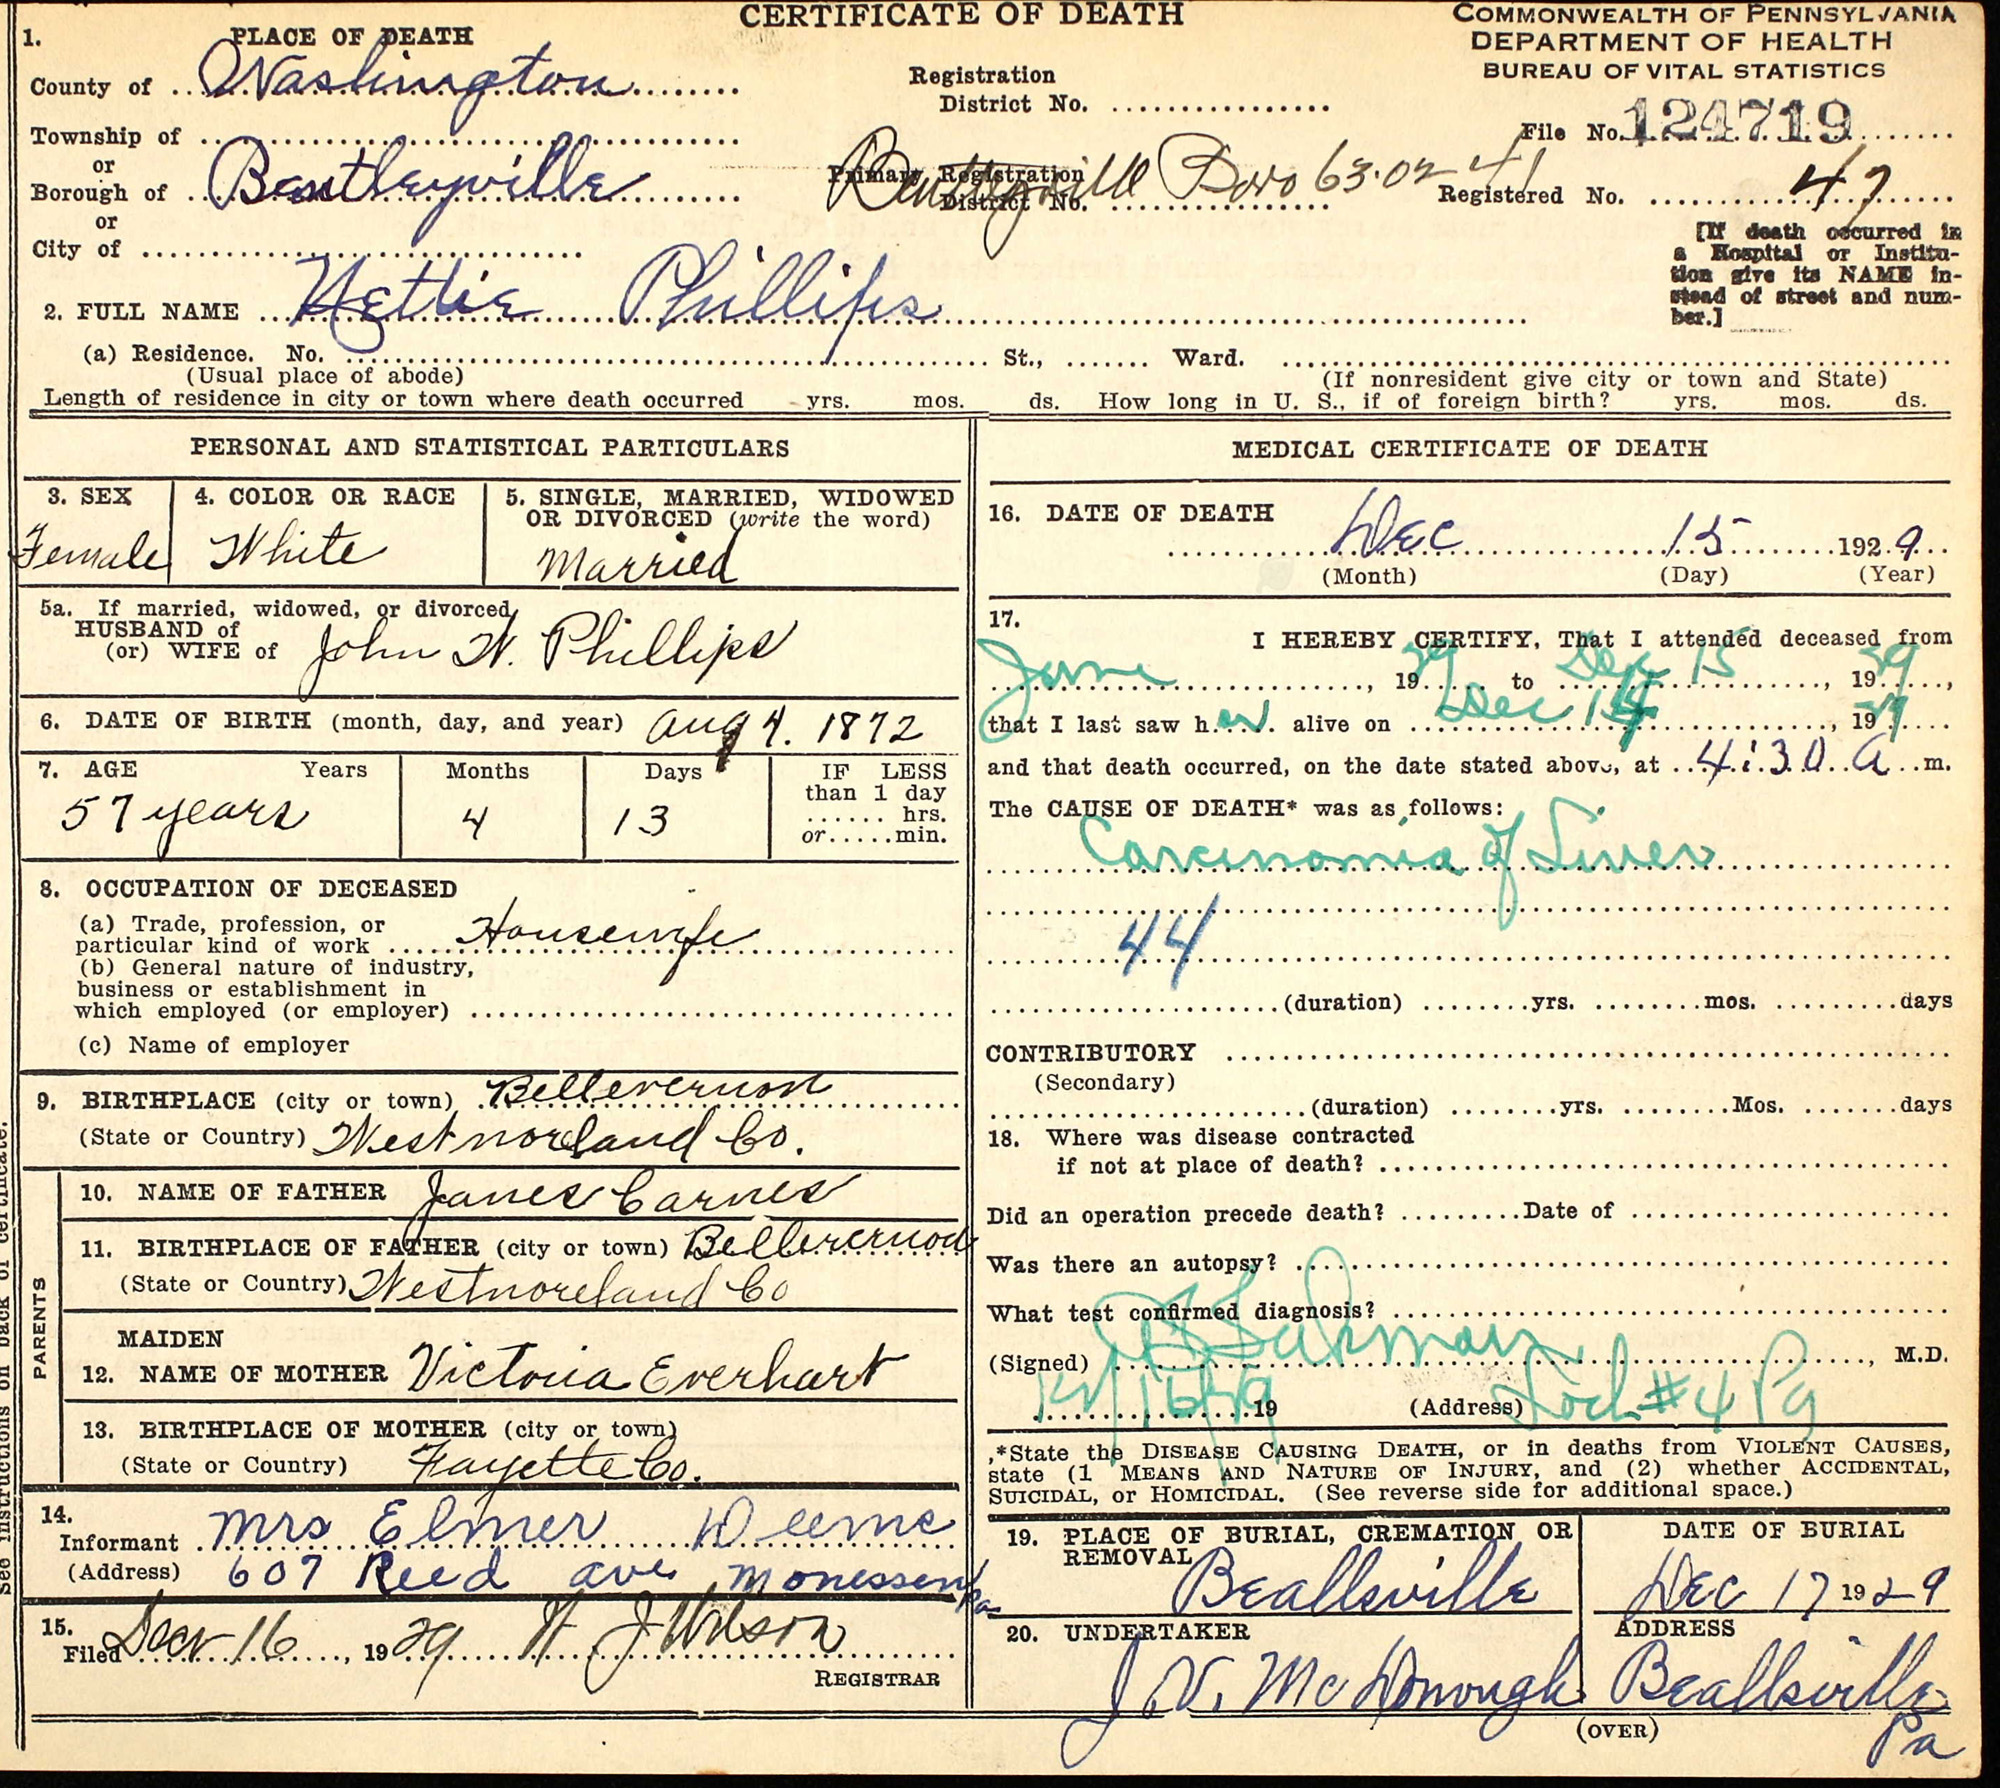 CERTIFICATE OF DEATH
COMMONWEALTH OF PENNSYLVANIA
DEPARTMENT OF HEALTH
BUREAU OF VITAL STATISTICS
1. PLACE OF DEATH
County of Washington
Registration
District No.
File No. 124719
Township of
or
Borough of Bentleyville
Primary Registration
District No.
Bentleyville Boro 63-02-41
Registered No. 47
or
City of
[If death occurred in
a Hospital or Institu-
tion give its NAME in-
stead of street and num-
ber.]
2. FULL NAME Nettie Phillips
(a) Residence. No. St., Ward.
(Usual place of abode) (If nonresident give city or town and State)
Length of residence in city or town where death occurred yrs. mos. ds. How long in U. S., if of foreign birth? yrs. mos. ds.
PERSONAL AND STATISTICAL PARTICULARS
3. SEX
Female
4. COLOR OR RACE
White
5. SINGLE, MARRIED, WIDOWED
OR DIVORCED (write the word)
Married
5a. If married, widowed, or divorced
HUSBAND of
(or) WIFE of John W. Phillips
6. DATE OF BIRTH (month, day, and year) Aug 4. 1872
7. AGE Years Months Days IF LESS
than 1 day
hrs.
or min.
57 years 4 13
8. OCCUPATION OF DECEASED
(a) Trade, profession, or
particular kind of work Housewife
(b) General nature of industry,
business or establishment in
which employed (or employer)
(c) Name of employer
9. BIRTHPLACE (city or town) Bellevernon
(State or Country) Westmoreland Co.
PARENTS
10. NAME OF FATHER James Carnes
11. BIRTHPLACE OF FATHER (city or town) Bellevernon
(State or Country) Westmoreland Co
MAIDEN
12. NAME OF MOTHER Victoria Everhart
13. BIRTHPLACE OF MOTHER (city or town)
(State or Country) Fayette Co.
14.
Informant Mrs Elmer Deems
(Address) 607 Reed ave Monessen Pa
15.
Filed Dec 16, 1929 W J Wilson
REGISTRAR
See instructions on back of certificate.
MEDICAL CERTIFICATE OF DEATH
16. DATE OF DEATH
Dec 15 1929
(Month) (Day) (Year)
17.
I HEREBY CERTIFY, That I attended deceased from
June, 1929 to Dec 15, 1929,
that I last saw her alive on Dec 14, 1929
and that death occurred, on the date stated above, at 4:30 a m.
The CAUSE OF DEATH* was as follows:
Carcinomia of Liver
44
(duration) yrs. mos. days
CONTRIBUTORY
(Secondary)
(duration) yrs. Mos. days
18. Where was disease contracted
if not at place of death?
Did an operation precede death? Date of
Was there an autopsy?
What test confirmed diagnosis?
(Signed) , M.D.
19 (Address) Lock #4 Pa
*State the DISEASE CAUSING DEATH, or in deaths from VIOLENT CAUSES,
state (1 MEANS AND NATURE OF INJURY, and (2) whether ACCIDENTAL,
SUICIDAL, or HOMICIDAL. (See reverse side for additional space.)
19. PLACE OF BURIAL, CREMATION OR
REMOVAL
Beallsville
DATE OF BURIAL
Dec 17 1929
20. UNDERTAKER
J. V. McDonough
ADDRESS
Beallsville
Pa
(OVER)